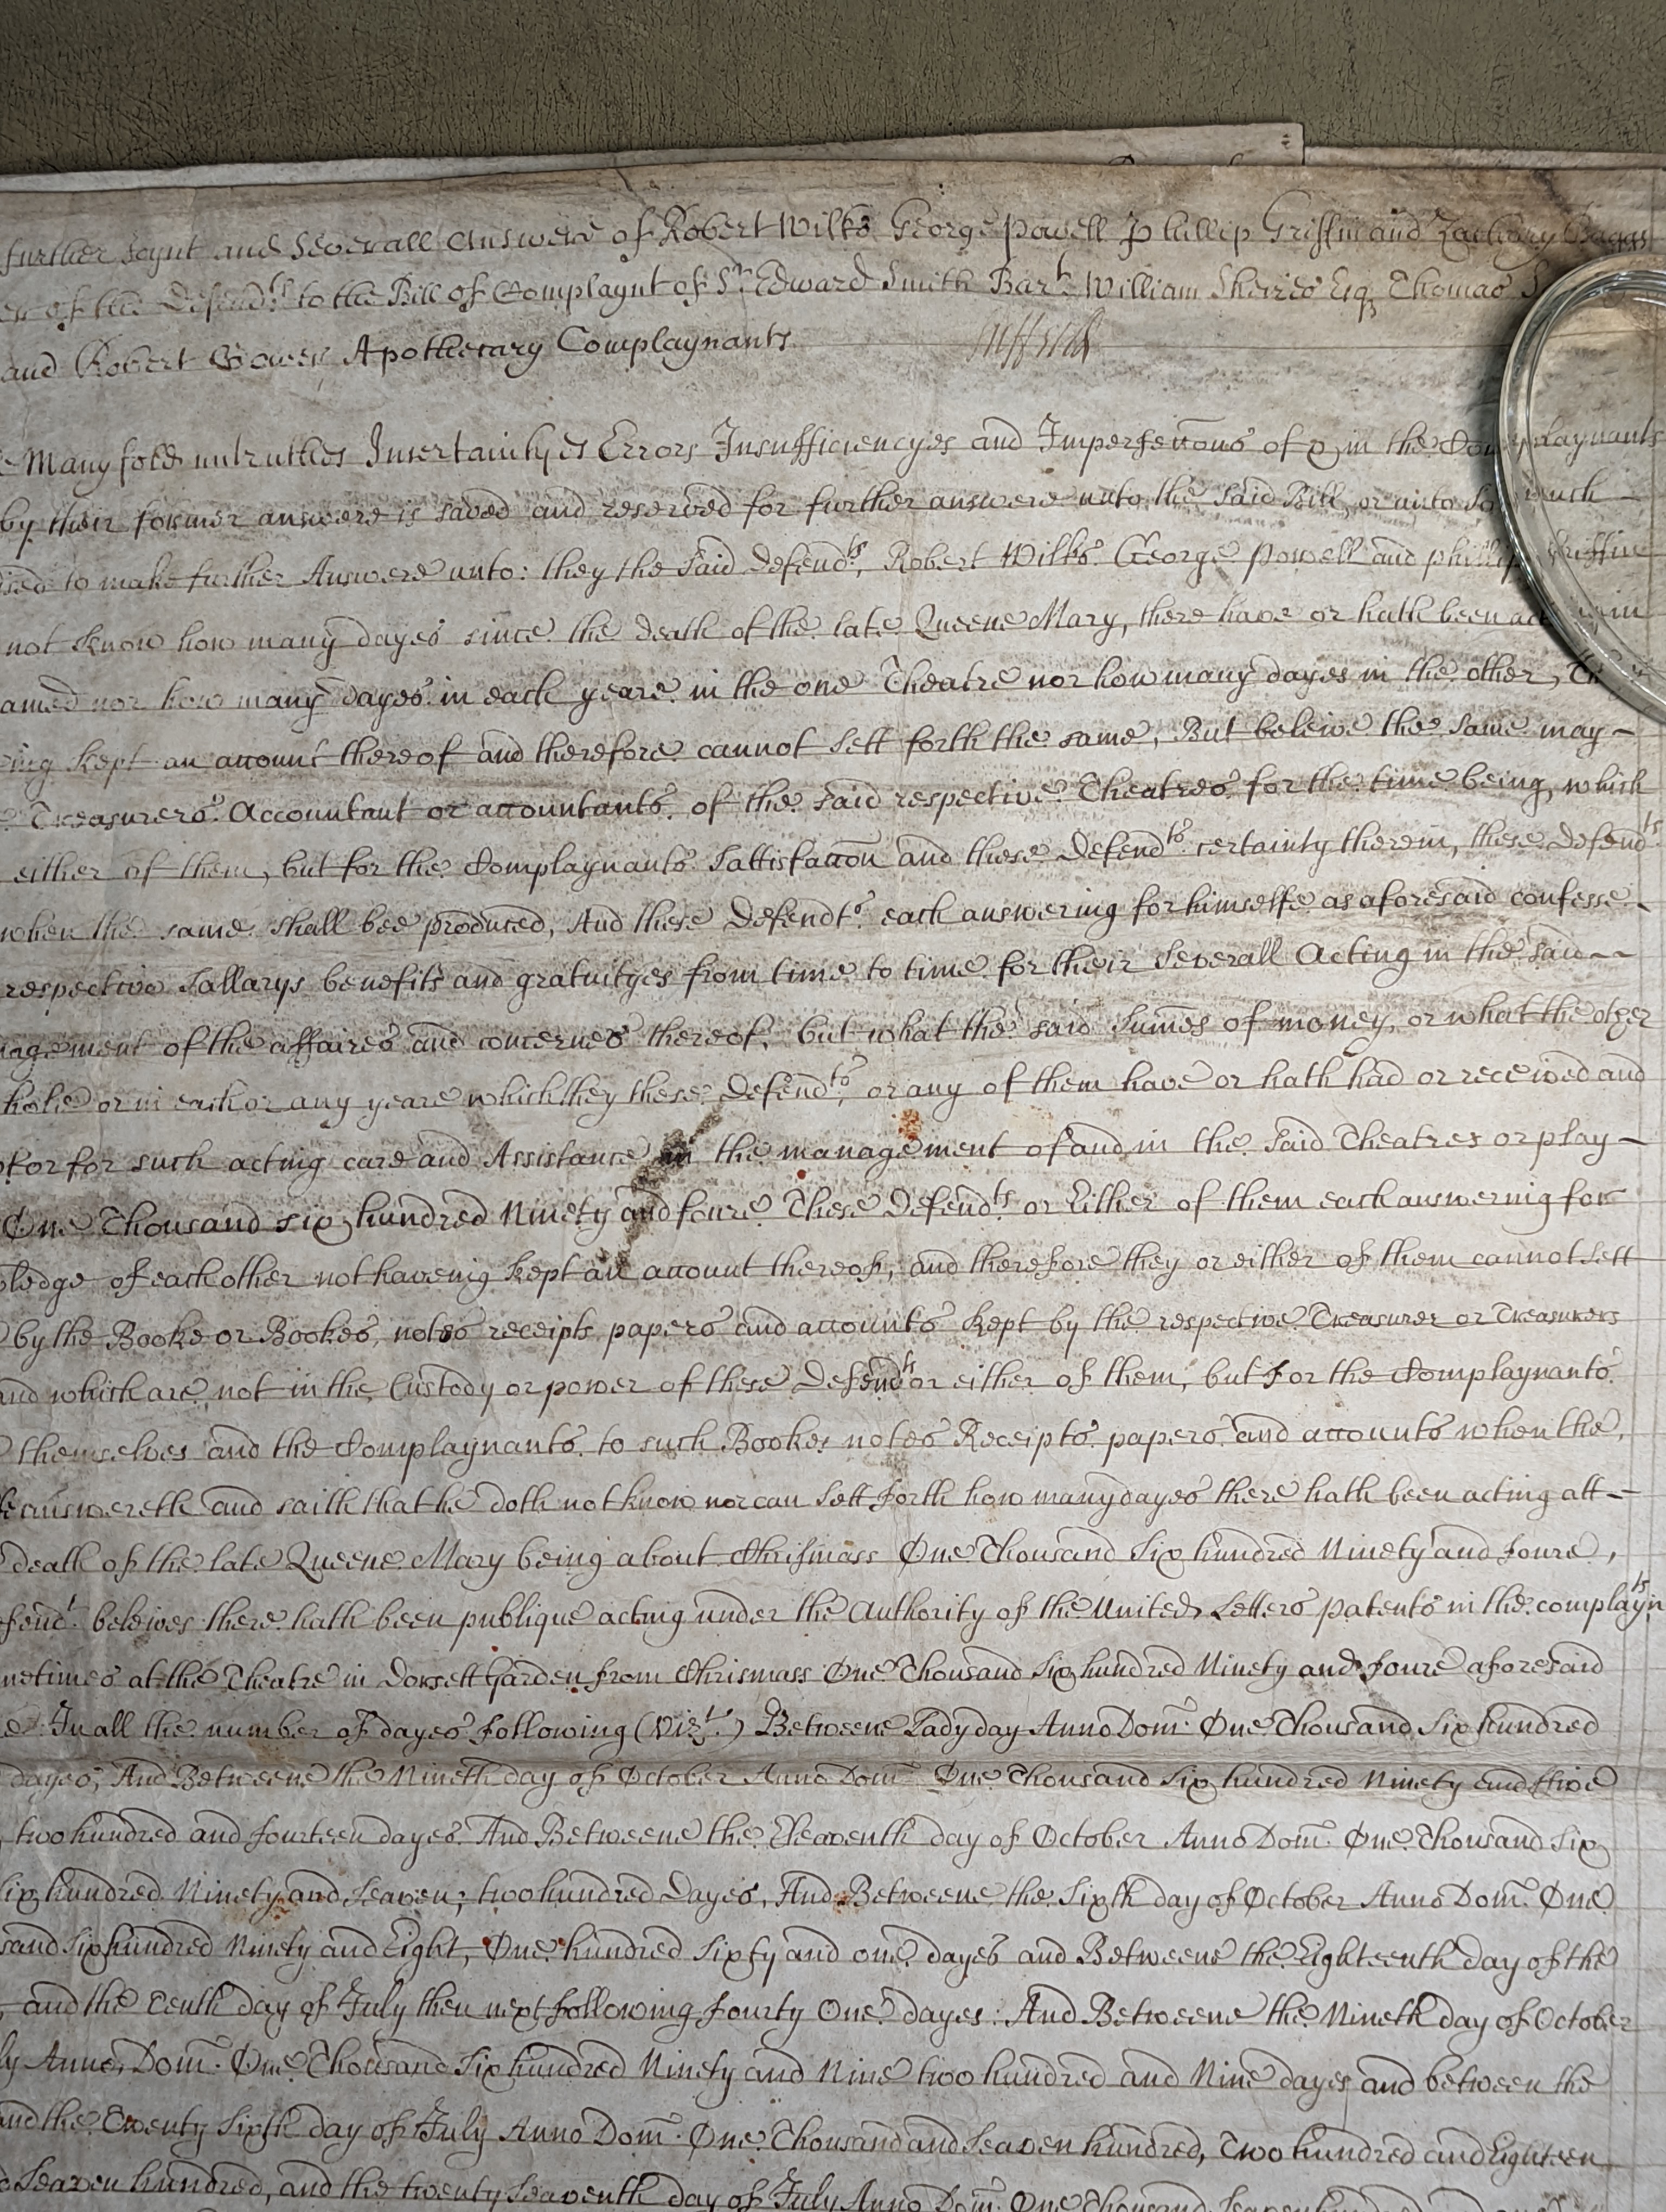 further Joynt and Severall Answere of Robert Wilks George Powell Phillip Griffin and Zachary Baggs
of the Defendts to the Bill of Complaynt of Sr Edward Smith Bart William Sheires Esq Thomas
and Robert Gower Apothecary Complaynants
Manyfold untruthes Incertaintyes Errors Insufficiencyes and Imperfeccons of & in the Complaynants
by their former answere is saved and reserved for further answere unto the said Bill, or unto so much
to make further Answere unto: they the said Defendts, Robert Wilks George Powell and phillip Griffin
not know how many dayes since the death of the late Queene Mary, there have or hath been
nor how many dayes in each yeare in the one Theatre nor how many dayes in the other,
kept an account thereof and therefore cannot sett forth the same, But beleive the same may
Treasurers Accountant or accountants of the said respective Theatres for the time being, which
either of them, but for the Complaynants Sattisfaccon and these Defendts certainty therein, these Defendts
when the same shall bee produced, And these Defendts each answering for himselfe as aforesaid confesse
respective Sallarys benefitts and gratuityes from time to time for their Severall Acting in the said
of the affaires and concernes thereof, but what the said sumes of money, or what the other
or in each or any yeare which they these Defendts, or any of them have or hath had or received and
for such acting care and Assistance in the management of and in the said Theatres or play
One Thousand six hundred Ninety and foure These Defendts or Either of them each answering for
of each other not haveing kept an account thereof, and therefore they or either of them cannot sett
by the Booke or Bookes, notes receipts papers and accounts kept by the respective Treasurer or Treasurers
and which are not in the Custody or power of these Defendts or either of them, but for the Complaynants
themselves and the Complaynants to such Bookes notes Receipts papers and accounts when the
answereth and saith that he doth not know nor can sett forth how many dayes there hath been acting att
death of the late Queene Mary being about Christmass One Thousand Six hundred Ninety and foure,
beleives there hath been publique acting under the Authority of the United Letters patents in the complaynts
at the Theatre in Dorsett Garden from Christmass One Thousand Six hundred Ninety and foure aforesaid
In all the number of dayes following (vizt.) Betweene Ladyday Anno Dom: One Thousand Six hundred
dayes; And Betweene the Nineth day of October Anno Dom: One Thousand Six hundred Ninety and five
two hundred and fourteen dayes. And Betweene the Eleaventh day of October Anno Dom: One Thousand Six
Six hundred Ninety and Seaven; two hundred Dayes, And Betweene the Sixth day of October Anno Dom: One
Six hundred Ninety and Eight, One hundred Sixty and one dayes and Betweene the Eighteenth day of the
and the Tenth day of July then next following fourty One dayes: And Betweene the Nineth day of October
Anno Dom: One Thousand Six hundred Ninety and Nine two hundred and Nine dayes and between the
and the Twenty Sixth day of July Anno Dom: One Thousand and Seaven hundred, Two hundred and Eighteen
Seaven hundred, and the twenty Seaventh day of July Anno Dom: One Thousand Seaven